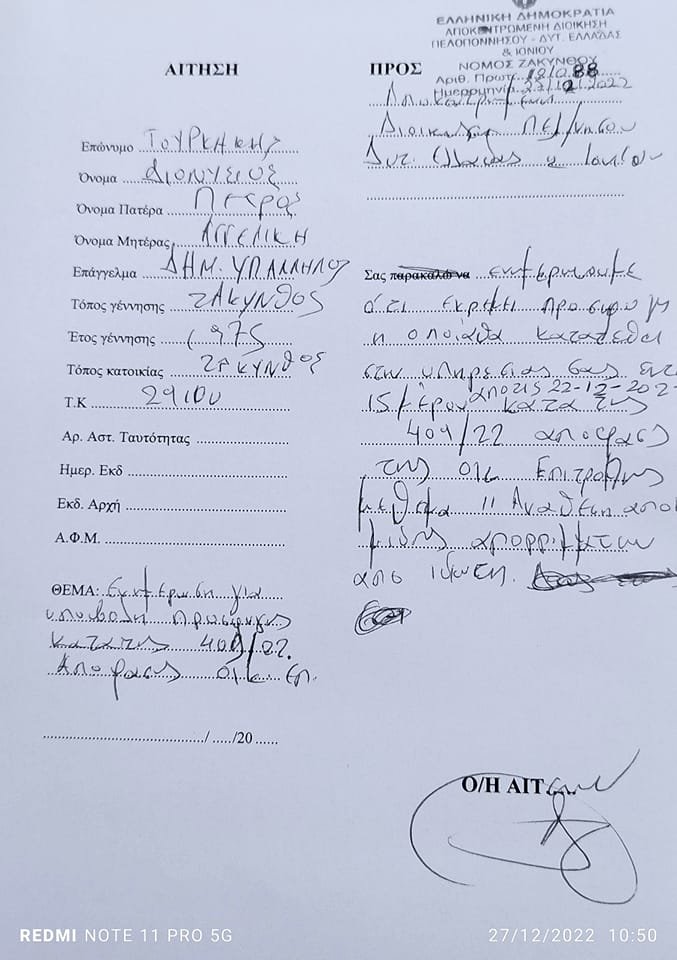 ΕΛΛΗΝΙΚΗ ΔΗΜΟΚΡΑΤΙΑ
ΑΠΟΚΕΝΤΡΩΜΕΝΗ ΔΙΟΙΚΗΣΗ
ΠΕΛΟΠΟΝΝΗΣΟΥ - ΔΥΤ. ΕΛΛΑΔΑΣ
& ΙΟΝΙΟΥ
ΝΟΜΟΣ ΖΑΚΥΝΘΟΥ
Αριθ. Πρωτ.
Ημερομηνία 27/12/2022
ΑΙΤΗΣΗ
Επώνυμο
Όνομα ΔΙΟΝΥΣΙΟΣ
Όνομα Πατέρα Πέτρος
Όνομα Μητέρας ΑΓΓΕΛΙΚΗ
Επάγγελμα ΔΗΜ. ΥΠΑΛΛΗΛΟΣ
Τόπος γέννησης ΖΑΚΥΝΘΟΣ
Έτος γέννησης 1975
Τόπος κατοικίας ΖΑΚΥΝΘΟΣ
Τ.Κ 29100
Αρ. Αστ. Ταυτότητας
Ημερ. Εκδ
Εκδ. Αρχή
Α.Φ.Μ.
ΘΕΜΑ: Ενημέρωση για
υποβολή προσφυγης
κατα της 409/22
Αποφασης Οικ. Επ.
....../...../20......
ΠΡΟΣ
Διοικηση Πελ/νησου
Δυτ. Ελλαδας & Ιονιου
Σας παρακαλώ να ενημερωνουμε
ότι εκκρεμει προσφυγη
η οποία θα κατατεθει
στην υπηρεσιας σας εντ
15 μερου απο τις 22-12-202 κατα της
409/22 αποφρασς
της Οικ Επιτροπης
με θεμα " Αναθεση απο
μιδης απορριμματων
απο ιδιωτη.
Ο/Η ΑΙΤ
REDMI NOTE 11 PRO 5G
27/12/2022 10:50